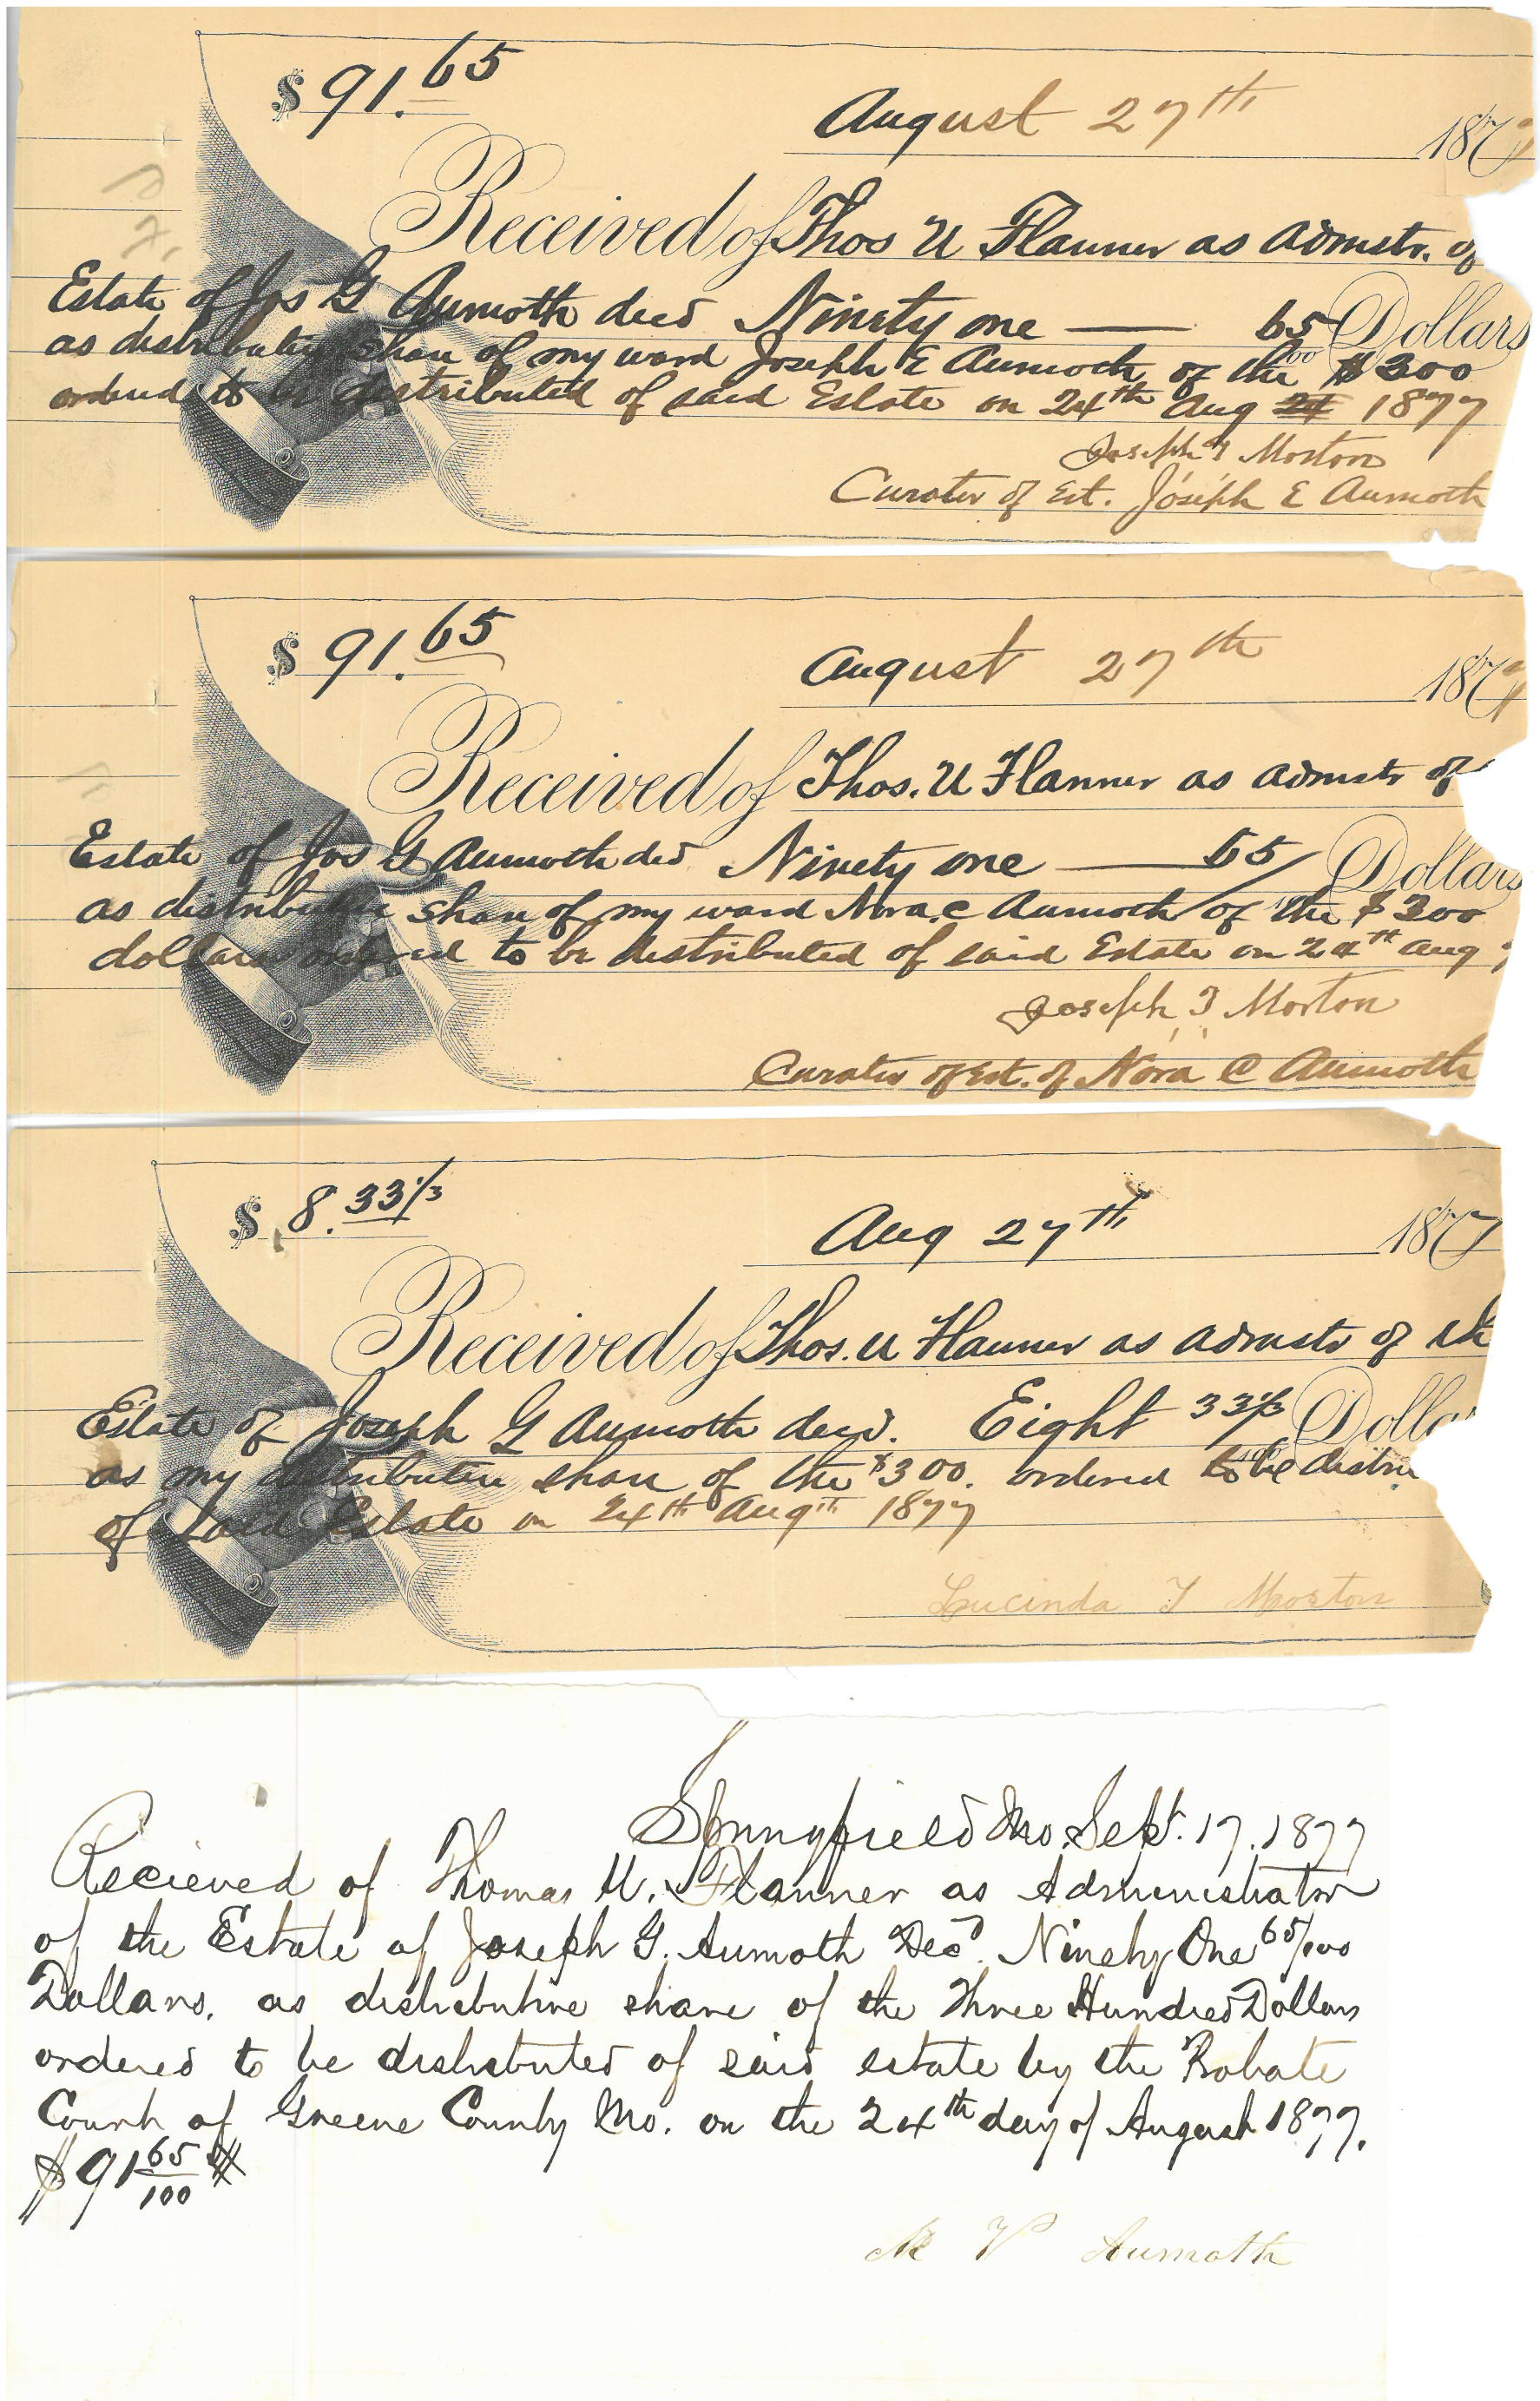 $ 91.65
August 27th 1877
Received of Thos U Flanner as admstr. of
Estate of Jos G Aumoth decd Ninety one — 65/100 Dollars
as distributive share of my ward Joseph E Aumoth of the $300
ordered to be distributed of said Estate on 24th Aug 1877
Joseph T Morton
Curator of Est. Joseph E Aumoth
$ 91.65
August 27th 187
Received of Thos. U Flanner as admstr of
Estate of Jos G Aumoth decd Ninety one — 65/ Dollars
as distributive share of my ward Nora C Aumoth of the $300
dollars ordered to be distributed of said Estate on 24th Aug
Joseph T Morton
Curator of Est. of Nora C Aumoth
$ 8.33 1/3
Aug 27th 1877
Received of Thos. U Flanner as admstr of the
Estate of Joseph G Aumoth decd. Eight 33 1/3 Dolla
as my distributive share of the $300. ordered to be distri
of said Estate on 24th Augth 1877
Lucinda T Morton
Springfield Mo. Sept. 17. 1877
Recieved of Thomas U. Flanner as Administrator
of the Estate of Joseph G. Aumoth Decd. Ninety One 65/100
Dollars. as distributive share of the Three Hundred Dollars
ordered to be distributed of said estate by the Probate
Court of Greene County Mo. on the 24th day of August 1877.
$91 65/100
M V Aumoth